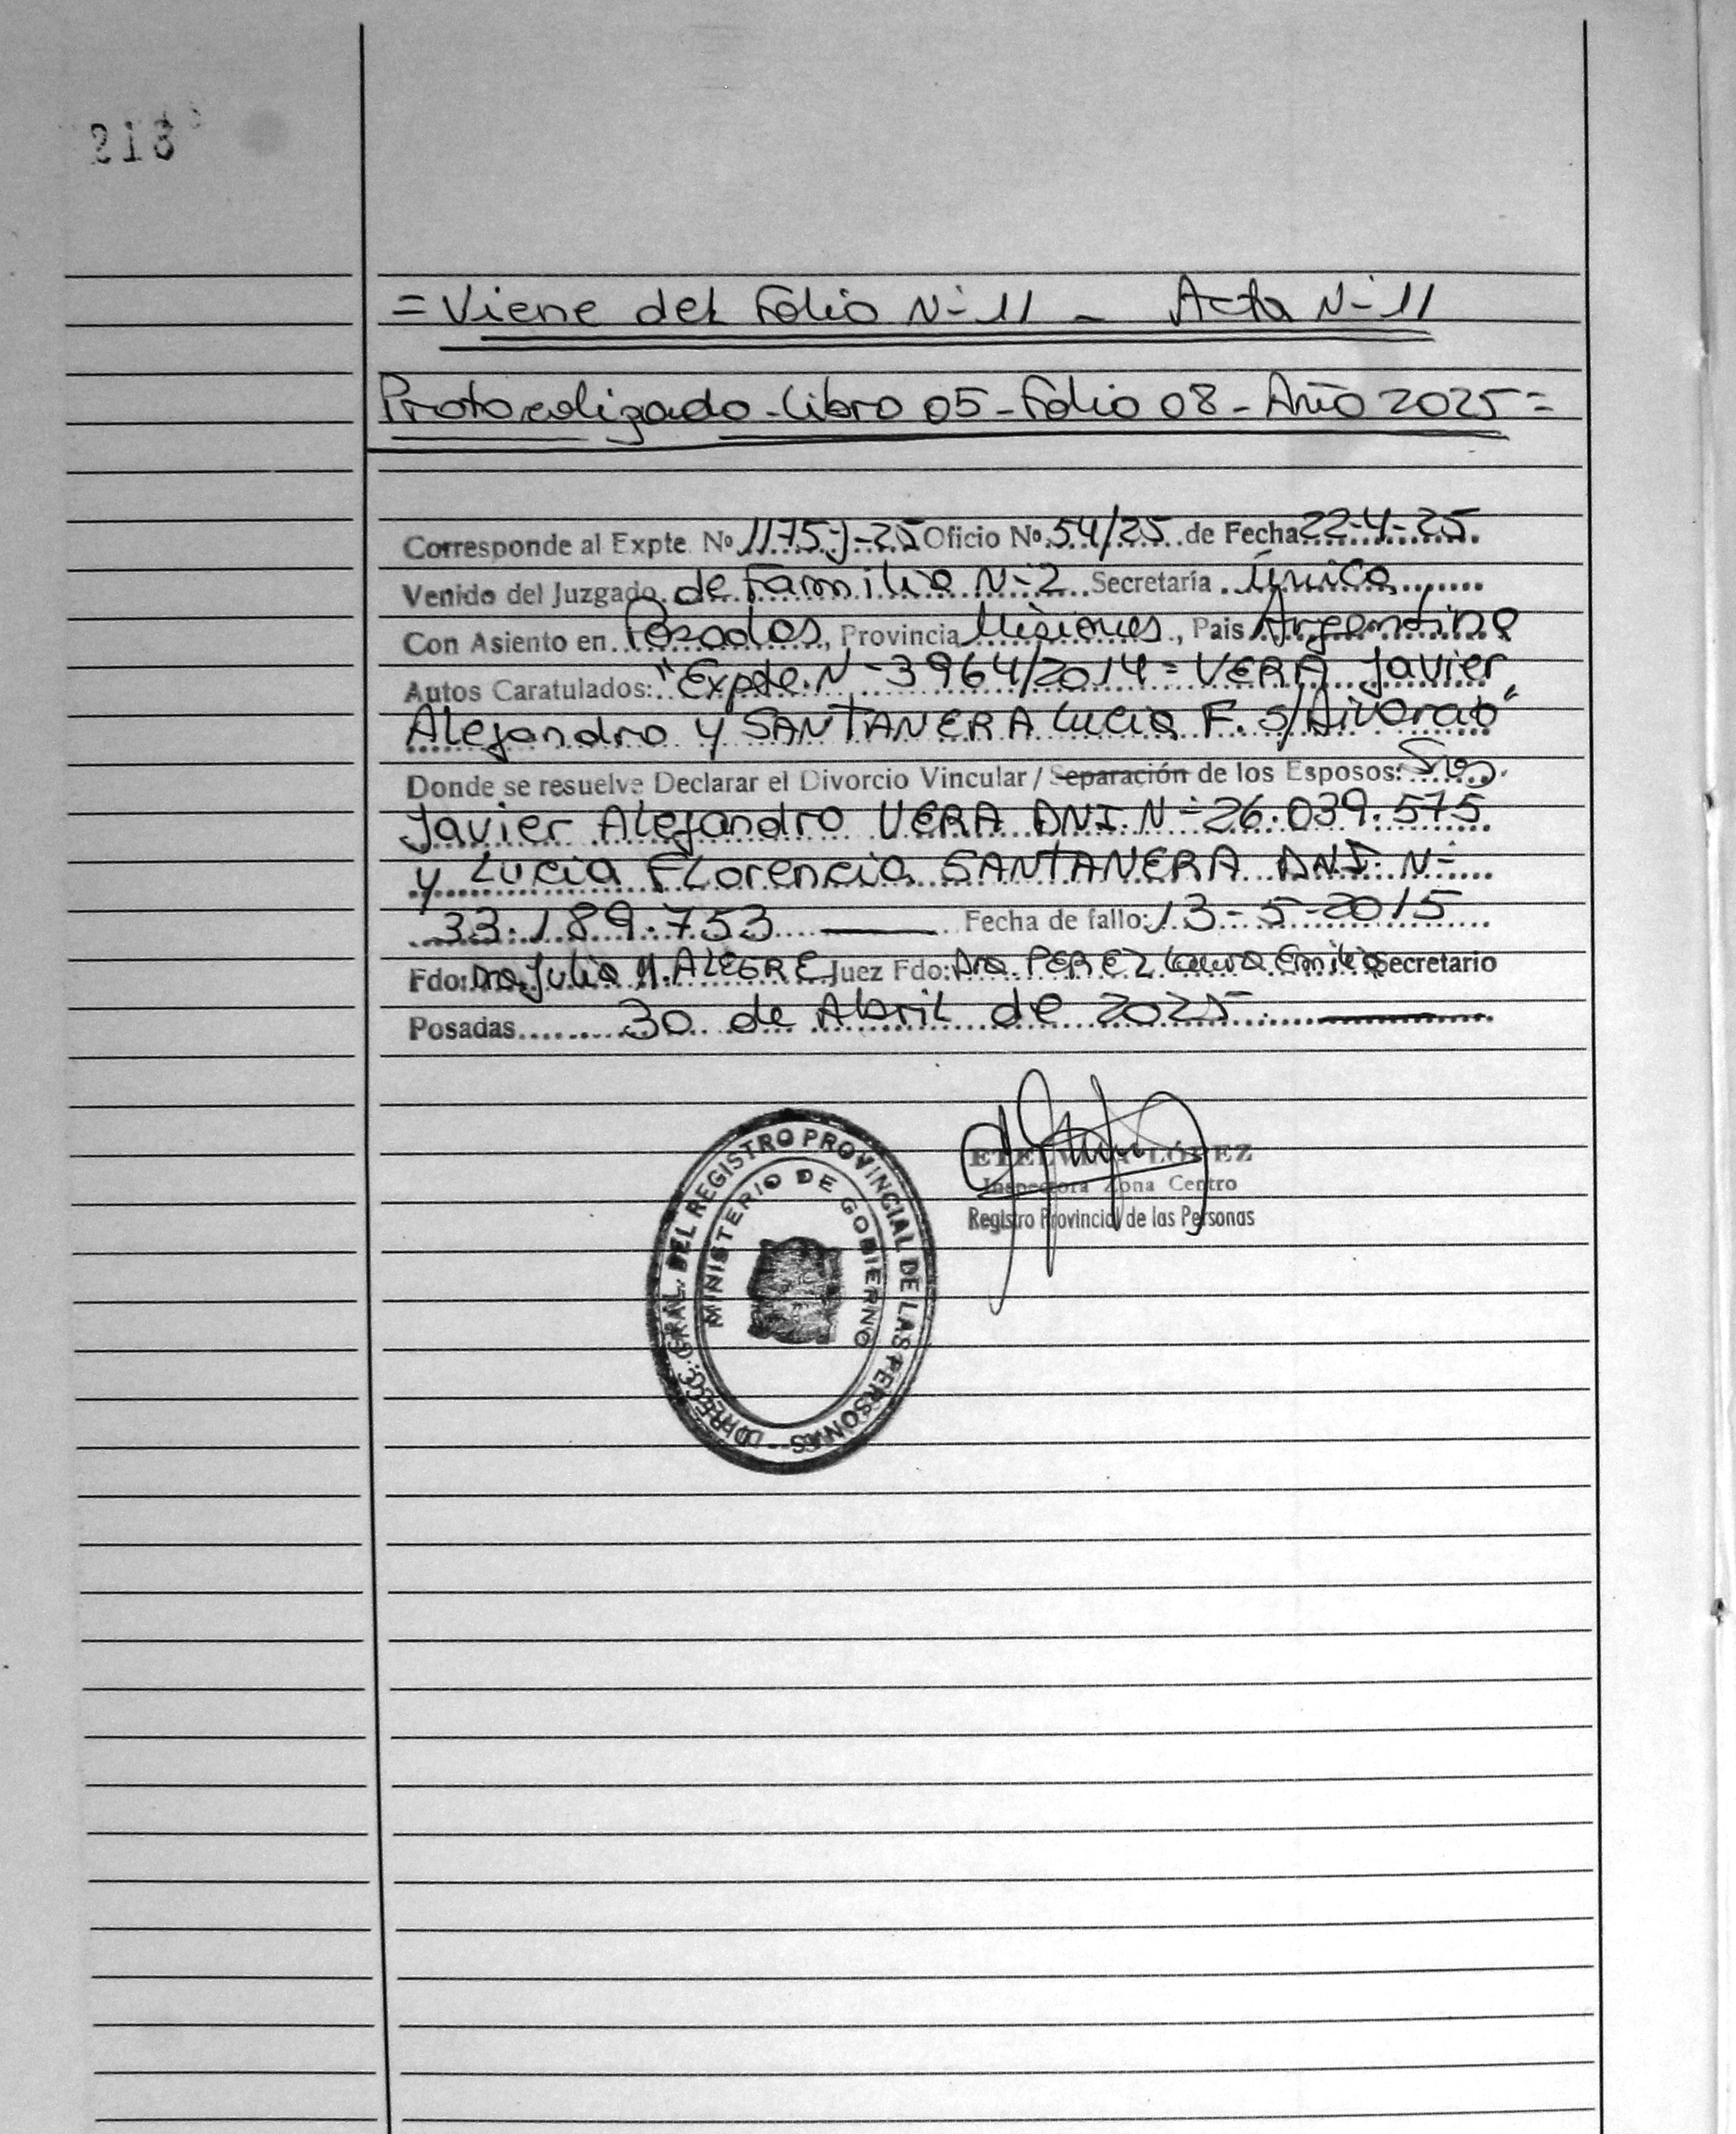 213
= Viene del Folio N-11 - Acta N-11
Protocolizado-Libro 05-Folio 08-Año 2025=
Corresponde al Expte. Nº 1175-J-25 Oficio Nº 54/25 de Fecha 22-4-25.
Venido del Juzgado de Familia N-2 Secretaría Única
Con Asiento en Posadas, Provincia Misiones, Pais Argentina
Autos Caratulados: "Expte. N-3964/2014= VERA Javier
Alejandro y SANTANERA Lucia F. s/Divorcio"
Donde se resuelve Declarar el Divorcio Vincular / Separación de los Esposos: Sres.
Javier Alejandro VERA DNI. N-26.039.575
y Lucia Florencia SANTANERA DNI. N-
33.189.753 Fecha de fallo: 13-5-2015
Fdo: Dra. Julia M. ALEGRE Juez Fdo: Dra. PEREZ Laura Emilia Secretario
Posadas 30 de Abril de 2025
DIRECC. GRAL. DEL REGISTRO PROVINCIAL DE LAS PERSONAS
MINISTERIO DE GOBIERNO
ETELVINA LÓPEZ
Inspectora Zona Centro
Registro Provincial de las Personas